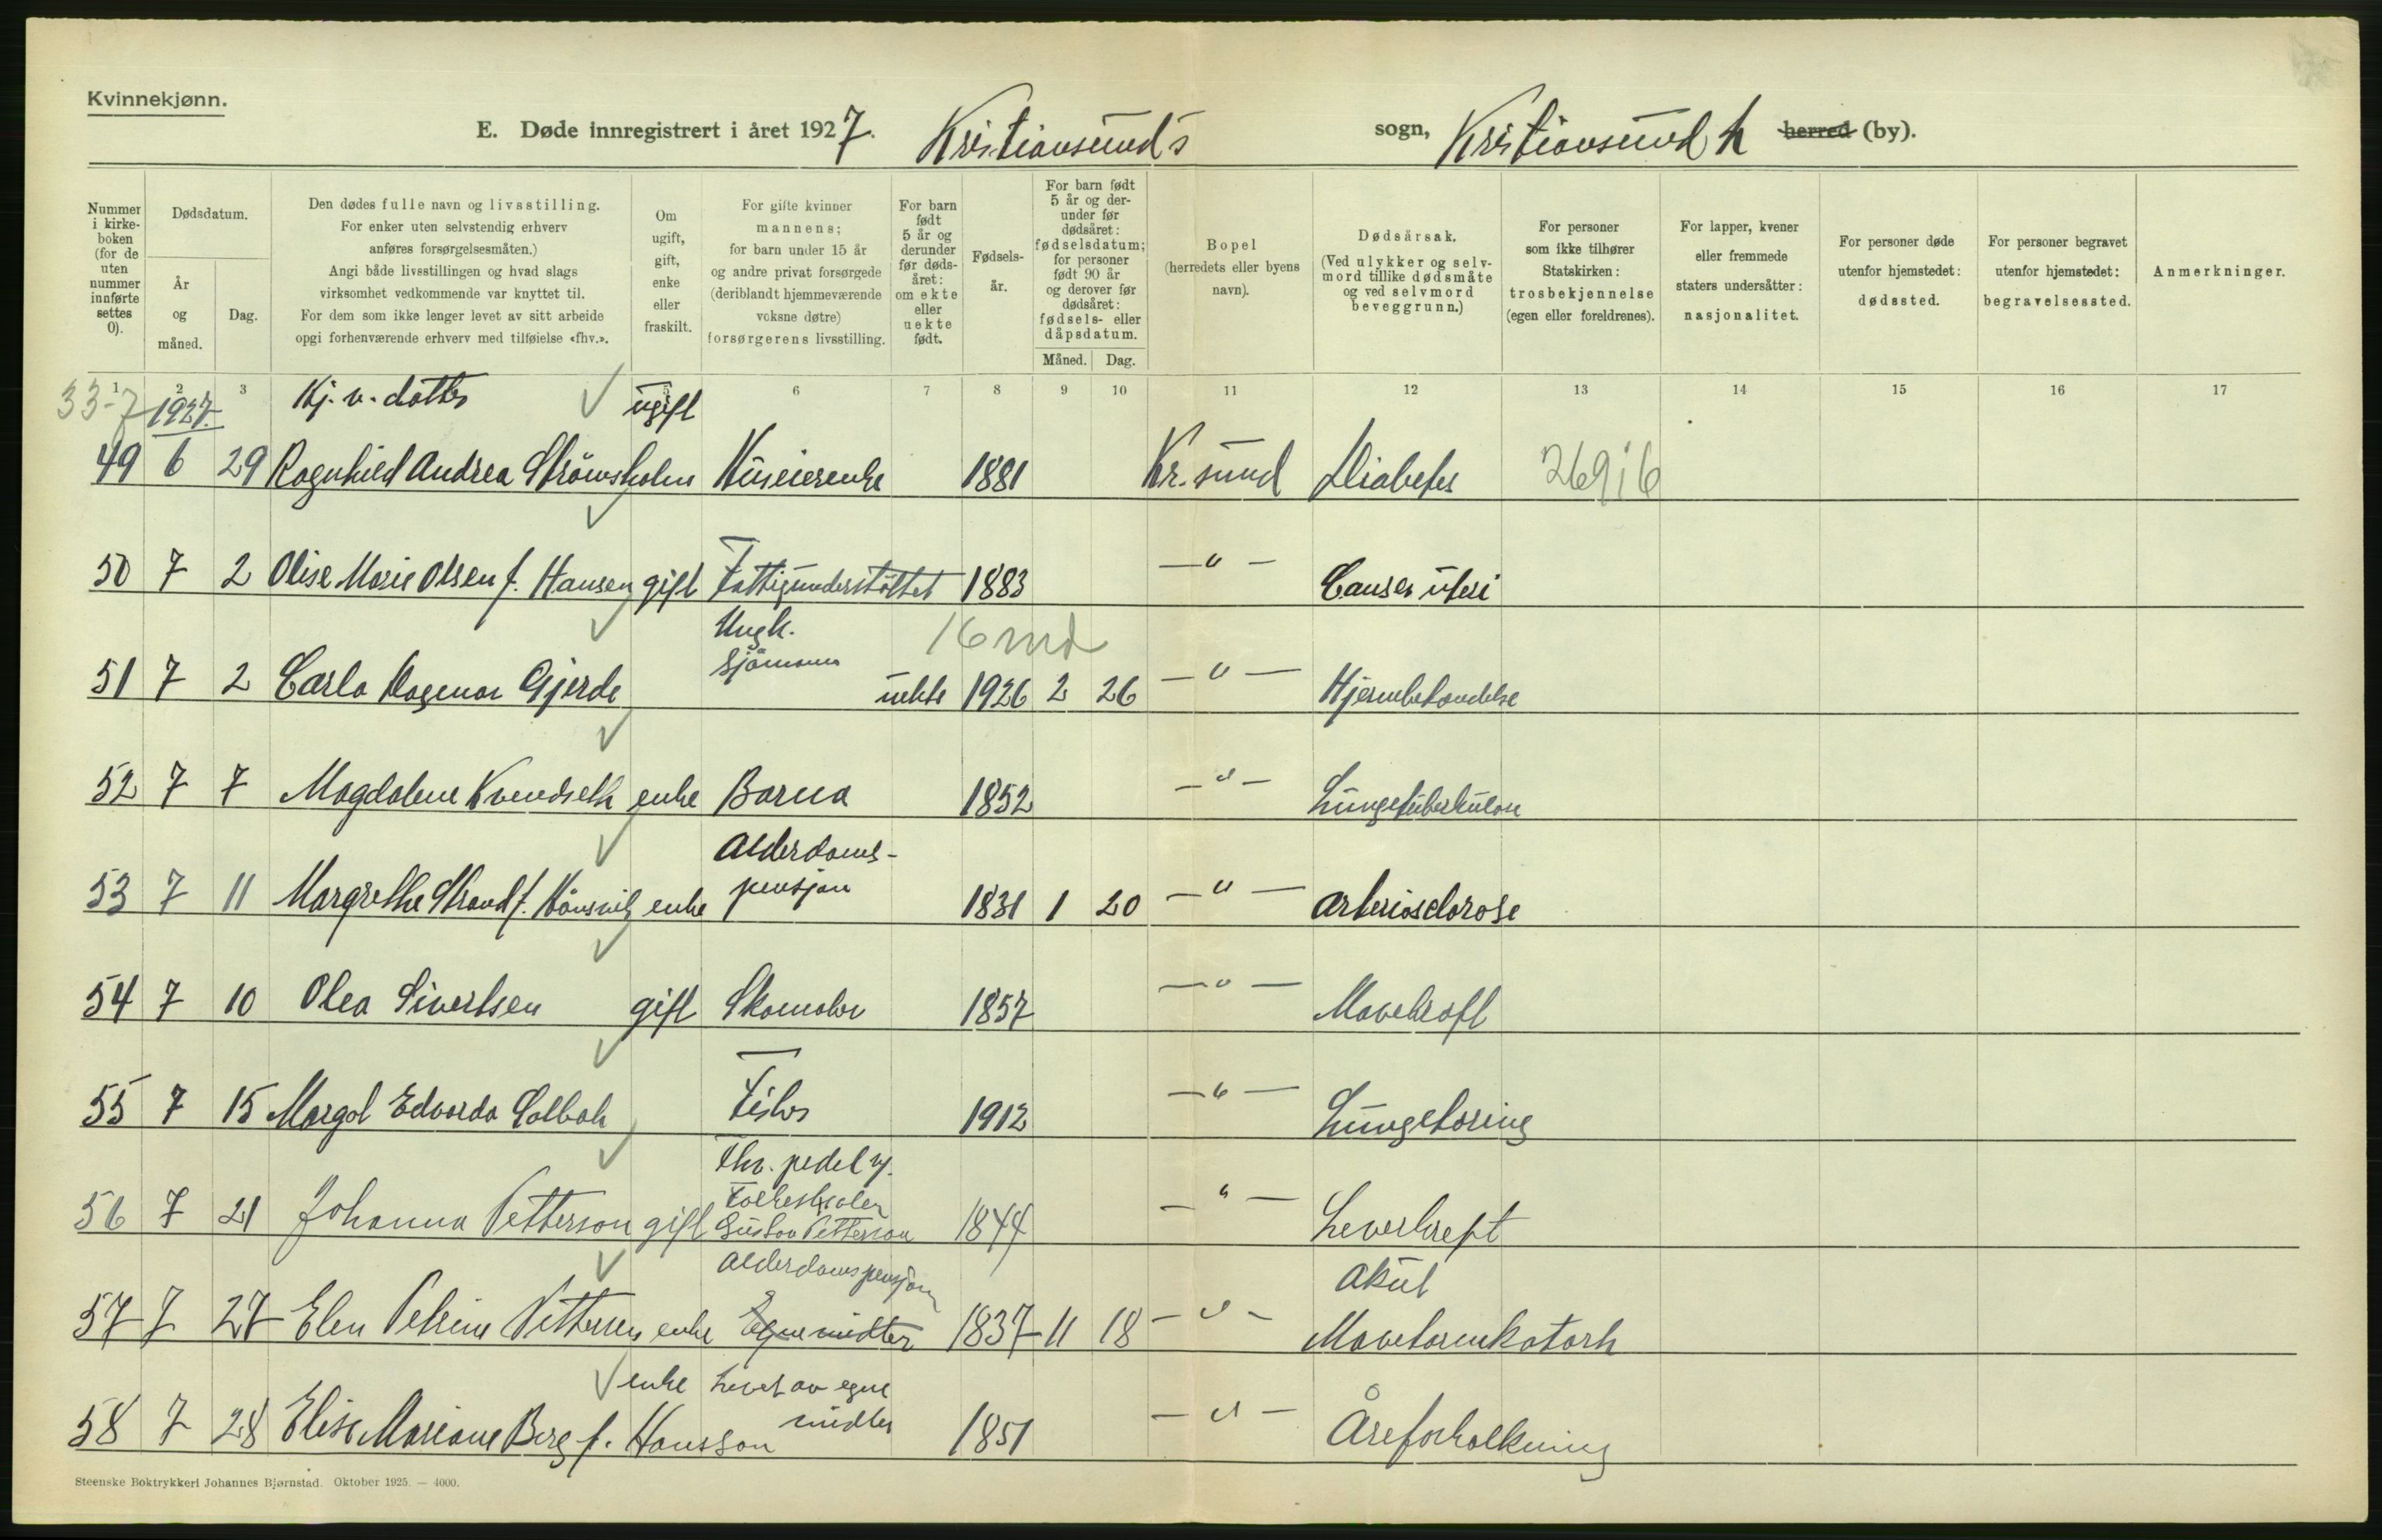 Kvinnekjønn.
E. Døde innregistrert i året 1927. Kristiansunds sogn, Kristiansund N herred (by).
Nummer i kirke-boken (for de uten nummer innførte settes 0).
Dødsdatum.
År og måned.
Dag.
Den dødes fulle navn og livsstilling.
For enker uten selvstendig erhverv
anføres forsørgelsesmåten.)
Angi både livsstillingen og hvad slags
virksomhet vedkommende var knyttet til.
For dem som ikke lenger levet av sitt arbeide
opgi forhenværende erhverv med tilføielse «fhv.».
Om ugift, gift, enke eller fraskilt.
For gifte kvinner
mannens;
for barn under 15 år
og andre privat forsørgede
(deriblandt hjemmeværende
voksne døtre)
forsørgerens livsstilling.
For barn født 5 år og derunder før døds-året: om ekte eller uekte født.
Fødsels-år.
For barn født 5 år og der-under før dødsåret: fødselsdatum; for personer født 90 år og derover før dødsåret: fødsels- eller dåpsdatum.
Måned. Dag.
Bopel
(herredets eller byens
navn).
Dødsårsak.
(Ved ulykker og selv-
mord tillike dødsmåte
og ved selvmord
beveggrunn.)
For personer
som ikke tilhører
Statskirken:
trosbekjennelse
(egen eller foreldrenes).
For lapper, kvener
eller fremmede
staters undersåtter:
nasjonalitet.
For personer døde
utenfor hjemstedet:
dødssted.
For personer begravet
utenfor hjemstedet:
begravelsessted.
Anmerkninger.
1 2 3 5 6 7 8 9 10 11 12 13 14 15 16 17
33-7 1927. Kj. v. datter ugift
49 6 29 Ragnhild Andrea Strømsholm Huseierenke 1881 Kr.sund Diabetes 26916
50 7 2 Olise Marie Olsen f. Hansen gift Fattigunderstøttet 1883 — " — Cancer uteri
Ungk. 16 md
sjømann
51 7 2 Carla Dagmar Gjerde uekte 1926 2 26 — " — Hjernebetendelse
52 7 7 Magdalene Kvendseth enke Barna 1852 — " — Lungetuberkulose
Alderdoms-
pensjon
53 7 11 Margrethe Strand f. enke 1831 1 20 — " — Arteriosclorose
54 7 10 Olea Sivertsen gift Skomaker 1857 — " — Mavekraft
55 7 15 Margot Edvarda Solbak Fisker 1912 — " — Lungetæring
Fhv. pedel v.
Folkeskolen
56 7 21 Johanna Petterson gift Gustav Petterson 1844 — " — Leverkreft
Alderdomspensjon Akut
57 7 27 Elen Petrine Pettersen enke Egne midter 1837 11 18 — " — Mavetarmkatarh
enke Levet av egne
midler
58 7 28 Elise Mariane Berg f. Hansson 1851 — " — Åreforkalkning
Steenske Boktrykkeri Johannes Bjørnstad. Oktober 1925. — 4000.